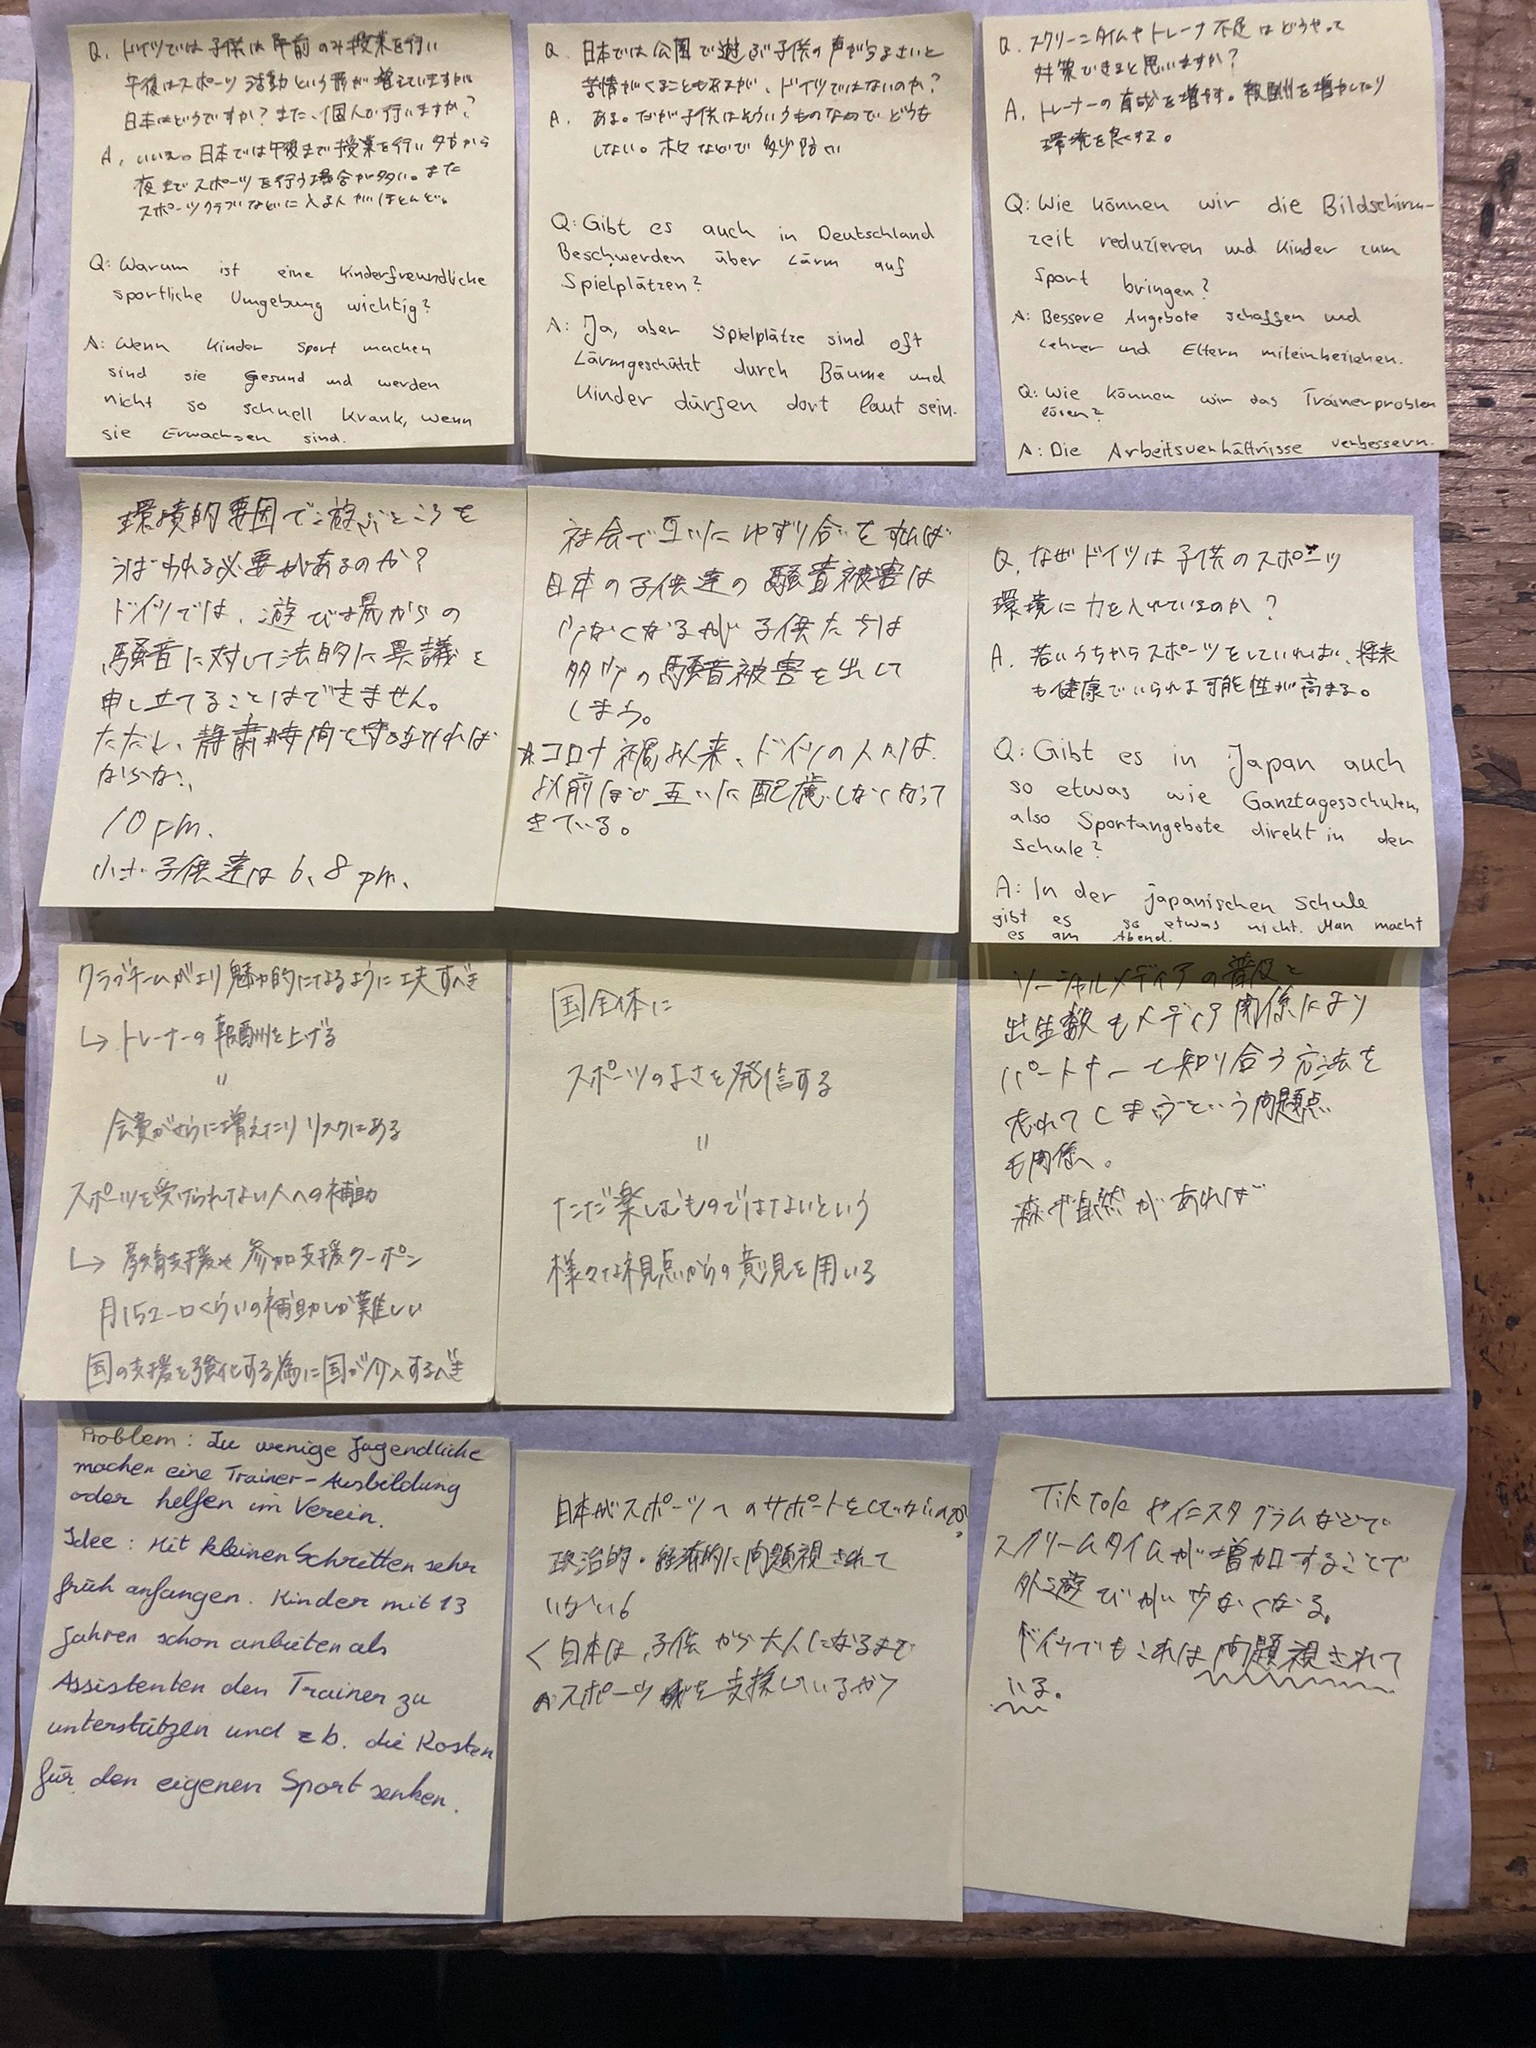 Q. ドイツでは子供は午前のみ授業を行い
午後はスポーツ活動という形が増えていますが
日本はどうですか？また、個人で行いますか？
A. いいえ。日本では午後まで授業を行い夕方から
夜までスポーツを行う場合が多い。また
スポーツクラブなどに入る人がほとんど。
Q: Warum ist eine kinderfreundliche
sportliche Umgebung wichtig?
A: Wenn Kinder Sport machen
sind sie Gesund und werden
nicht so schnell krank, wenn
sie Erwachsen sind.
Q. 日本では公園で遊ぶ子供の声がうるさいと
苦情がくることもあるが、ドイツではないのか？
A. ある。だが子供はそういうものなのでどうも
しない。木々などで多少防ぐ
Q: Gibt es auch in Deutschland
Beschwerden über Lärm auf
Spielplätzen?
A: Ja, aber Spielplätze sind oft
Lärmgeschützt durch Bäume und
Kinder dürfen dort laut sein.
Q. スクリーンタイムやトレーナ不足はどうやって
対策できると思いますか？
A. トレーナーの育成を増やす。報酬を増やしたり
環境を良くする。
Q: Wie können wir die Bildschirm-
zeit reduzieren und Kinder zum
Sport bringen?
A: Bessere Angebote schaffen und
Lehrer und Eltern miteinbeziehen.
Q: Wie können wir das Trainerproblem
lösen?
A: Die Arbeitsverhältnisse verbessern.
環境的要因で遊ぶところを
うばわれる必要があるのか？
ドイツでは、遊び場からの
騒音に対して法的に異議を
申し立てることはできません。
ただし、静粛時間を守らなければ
ならない
10 pm.
小さい子供達は 6、8 pm、
社会で互いにゆずり合いをすれば
日本の子供達の騒音被害は
少なくなるが子供たちは
多少の騒音被害を出して
しまう。
*コロナ禍以来、ドイツの人々は
以前ほど互いに配慮しなくなって
きている。
Q. なぜドイツは子供のスポーツ
環境に力を入れているのか？
A. 若いうちからスポーツをしていれば、将来
も健康でいられる可能性が高まる。
Q: Gibt es in Japan auch
so etwas wie Ganztagesschulen,
also Sportangebote direkt in der
Schule?
A: In der japanischen Schule
gibt es so etwas nicht. Man macht
es am Abend.
クラブチームがより魅力的になるように工夫すべき
↳ トレーナーの報酬を上げる
"
会費がさらに増えたりリスクにある
スポーツを受けられてない人への補助
↳ 教育支援や参加支援クーポン
月15ユーロくらいの補助しか難しい
国の支援を強化する為に国が介入するべき
国全体に
スポーツのよさを発信する
"
ただ楽しむものではないという
様々な視点からの意見を用いる
ソーシャルメディアの普及と
出生数もメディア関係により
パートナーと知り合う方法を
忘れてしまうという問題点
も関係。
森や自然があれば
Problem: Zu wenige Jugendliche
machen eine Trainer-Ausbildung
oder helfen im Verein.
Idee: Mit kleinen Schritten sehr
früh anfangen. Kinder mit 13
Jahren schon anbieten als
Assistenten den Trainer zu
unterstützen und z.b. die Kosten
für den eigenen Sport senken.
日本がスポーツへのサポートをしていないのか？
政治的・経済的に問題視されて
いない
< 日本は、子供から大人になるまで
スポーツを支援しているか？
TikTok やインスタグラムなどで
スクリームタイムが増加することで
外遊びが少なくなる。
ドイツでもこれは問題視されて
いる。